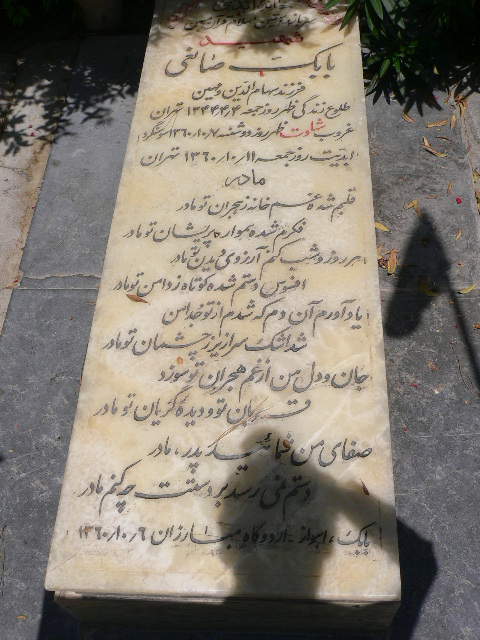 شهید
بابک صائغی
فرزند بهام الدین و مهین
طلوع زندگی ظهر روز جمعه ۱۳۴۴/۴/۴ تهران
غروب شهادت ظهر روز دوشنبه ۱۳۶۰/۱۰/۷ سوسنگرد
ابدیت روز جمعه ۱۳۶۰/۱۰/۱۱ تهران
مادر
قلبم شده غمخانه ز هجران تو مادر
فکرم شده همواره پریشان تو مادر
هر روز و شب کنم آرزوی دیدن تو مادر
افسوس دستم شده کوتاه ز دامن تو مادر
یاد آورم آن دم که شدم از تو جدا من
شد اشک سرازیر ز چشمان تو مادر
جان و دل من از غم هجران تو سوزد
قربان تو و دیده گریان تو مادر
صفای من شمائید پدر، مادر
دستم نمی رسد بر دستت چه کنم مادر
بابک، اهواز - اردوگاه مبارزان ۱۳۶۰/۱۰/۶